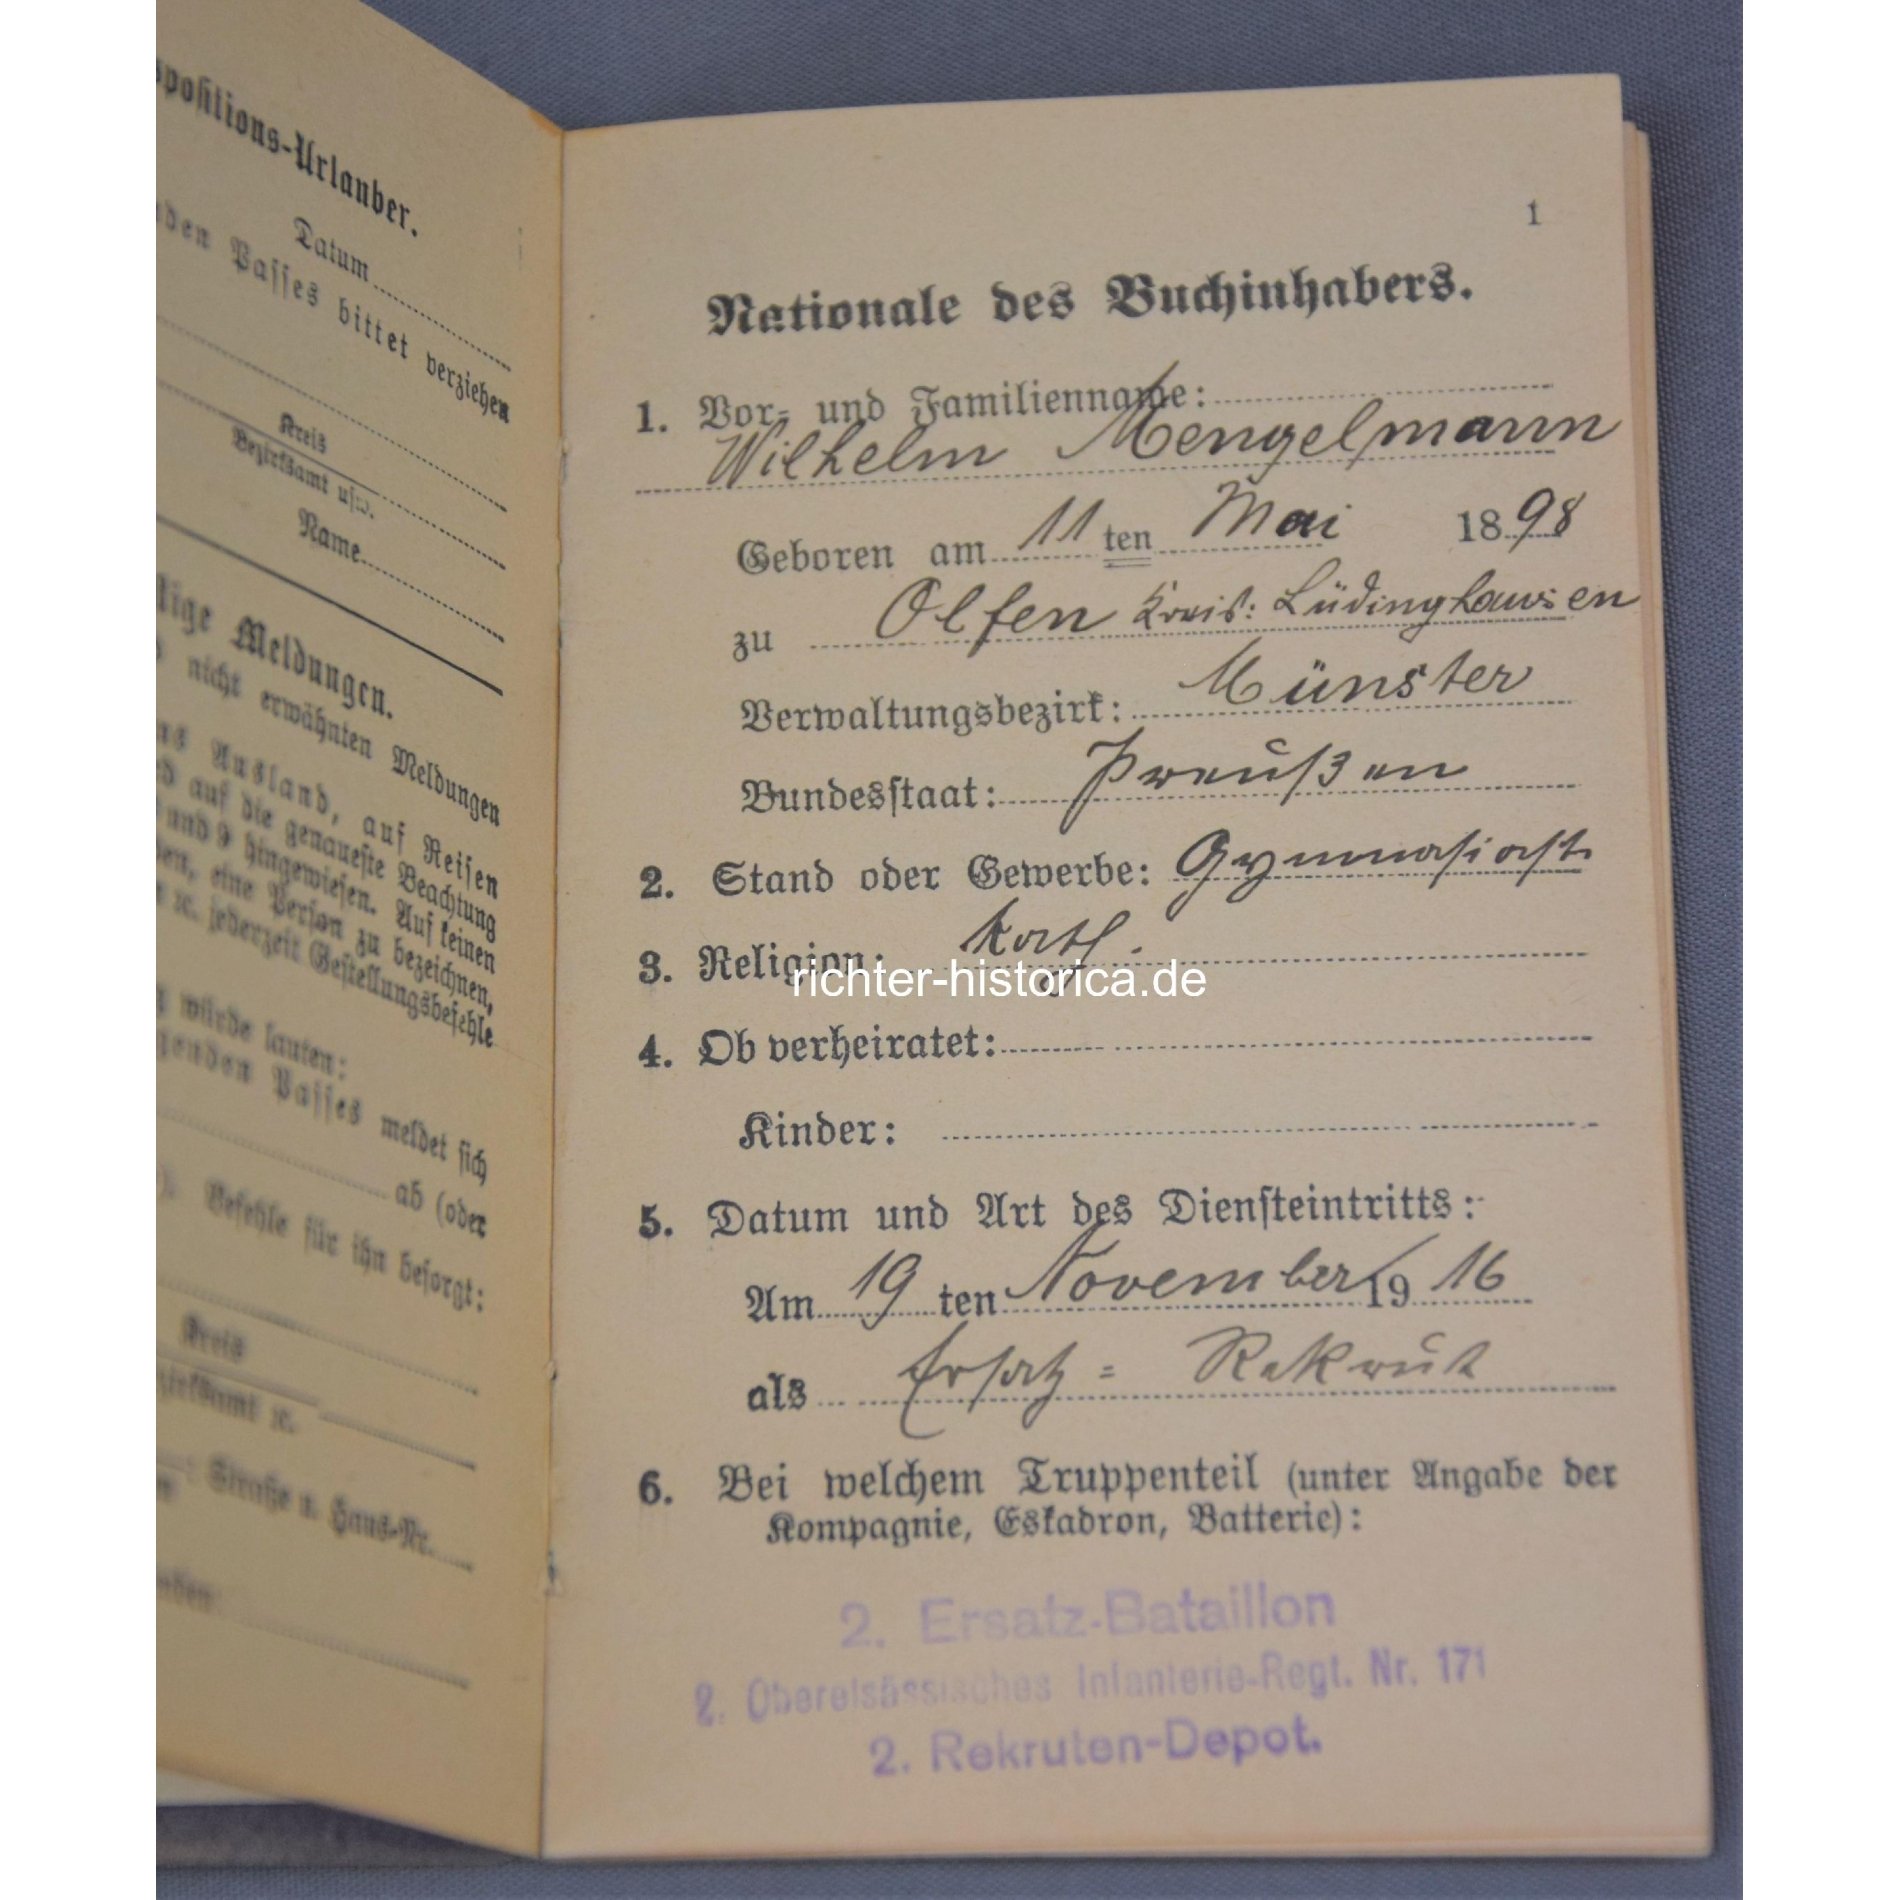 spositions-Urlauber.
Datum
den Passes bittet verziehen
Kreis
Bezirksamt usw.
Name
tige Meldungen.
nicht erwähnten Meldungen
ns Ausland, auf Reisen
auf die genaueste Beachtung
und 9 hingewiesen. Auf keinen
en, eine Person zu bezeichnen,
jederzeit Gestellungsbefehle
würde lauten:
genden Passes meldet sich
ab (oder
Befehle für ihn besorgt:
Kreis
zirksamt
Straße u. Haus-Nr.
1
Nationale des Buchinhabers.
1. Vor- und Familienname:
Wilhelm Mengelmann
Geboren am 11 ten Mai 1898
zu Olfen Kreis: Lüdinghausen
Verwaltungsbezirk: Münster
Bundesstaat: Preußen
2. Stand oder Gewerbe: Gymnasiast.
3. Religion: Kath.
richter-historica.de
4. Ob verheiratet:
Kinder:
5. Datum und Art des Diensteintritts:
Am 19 ten November 1916
als Ersatz = Rekrut
6. Bei welchem Truppenteil (unter Angabe der
Kompagnie, Eskadron, Batterie):
2. Ersatz-Bataillon
2. Oberelsässisches Infanterie-Regt. Nr. 171
2. Rekruten-Depot.